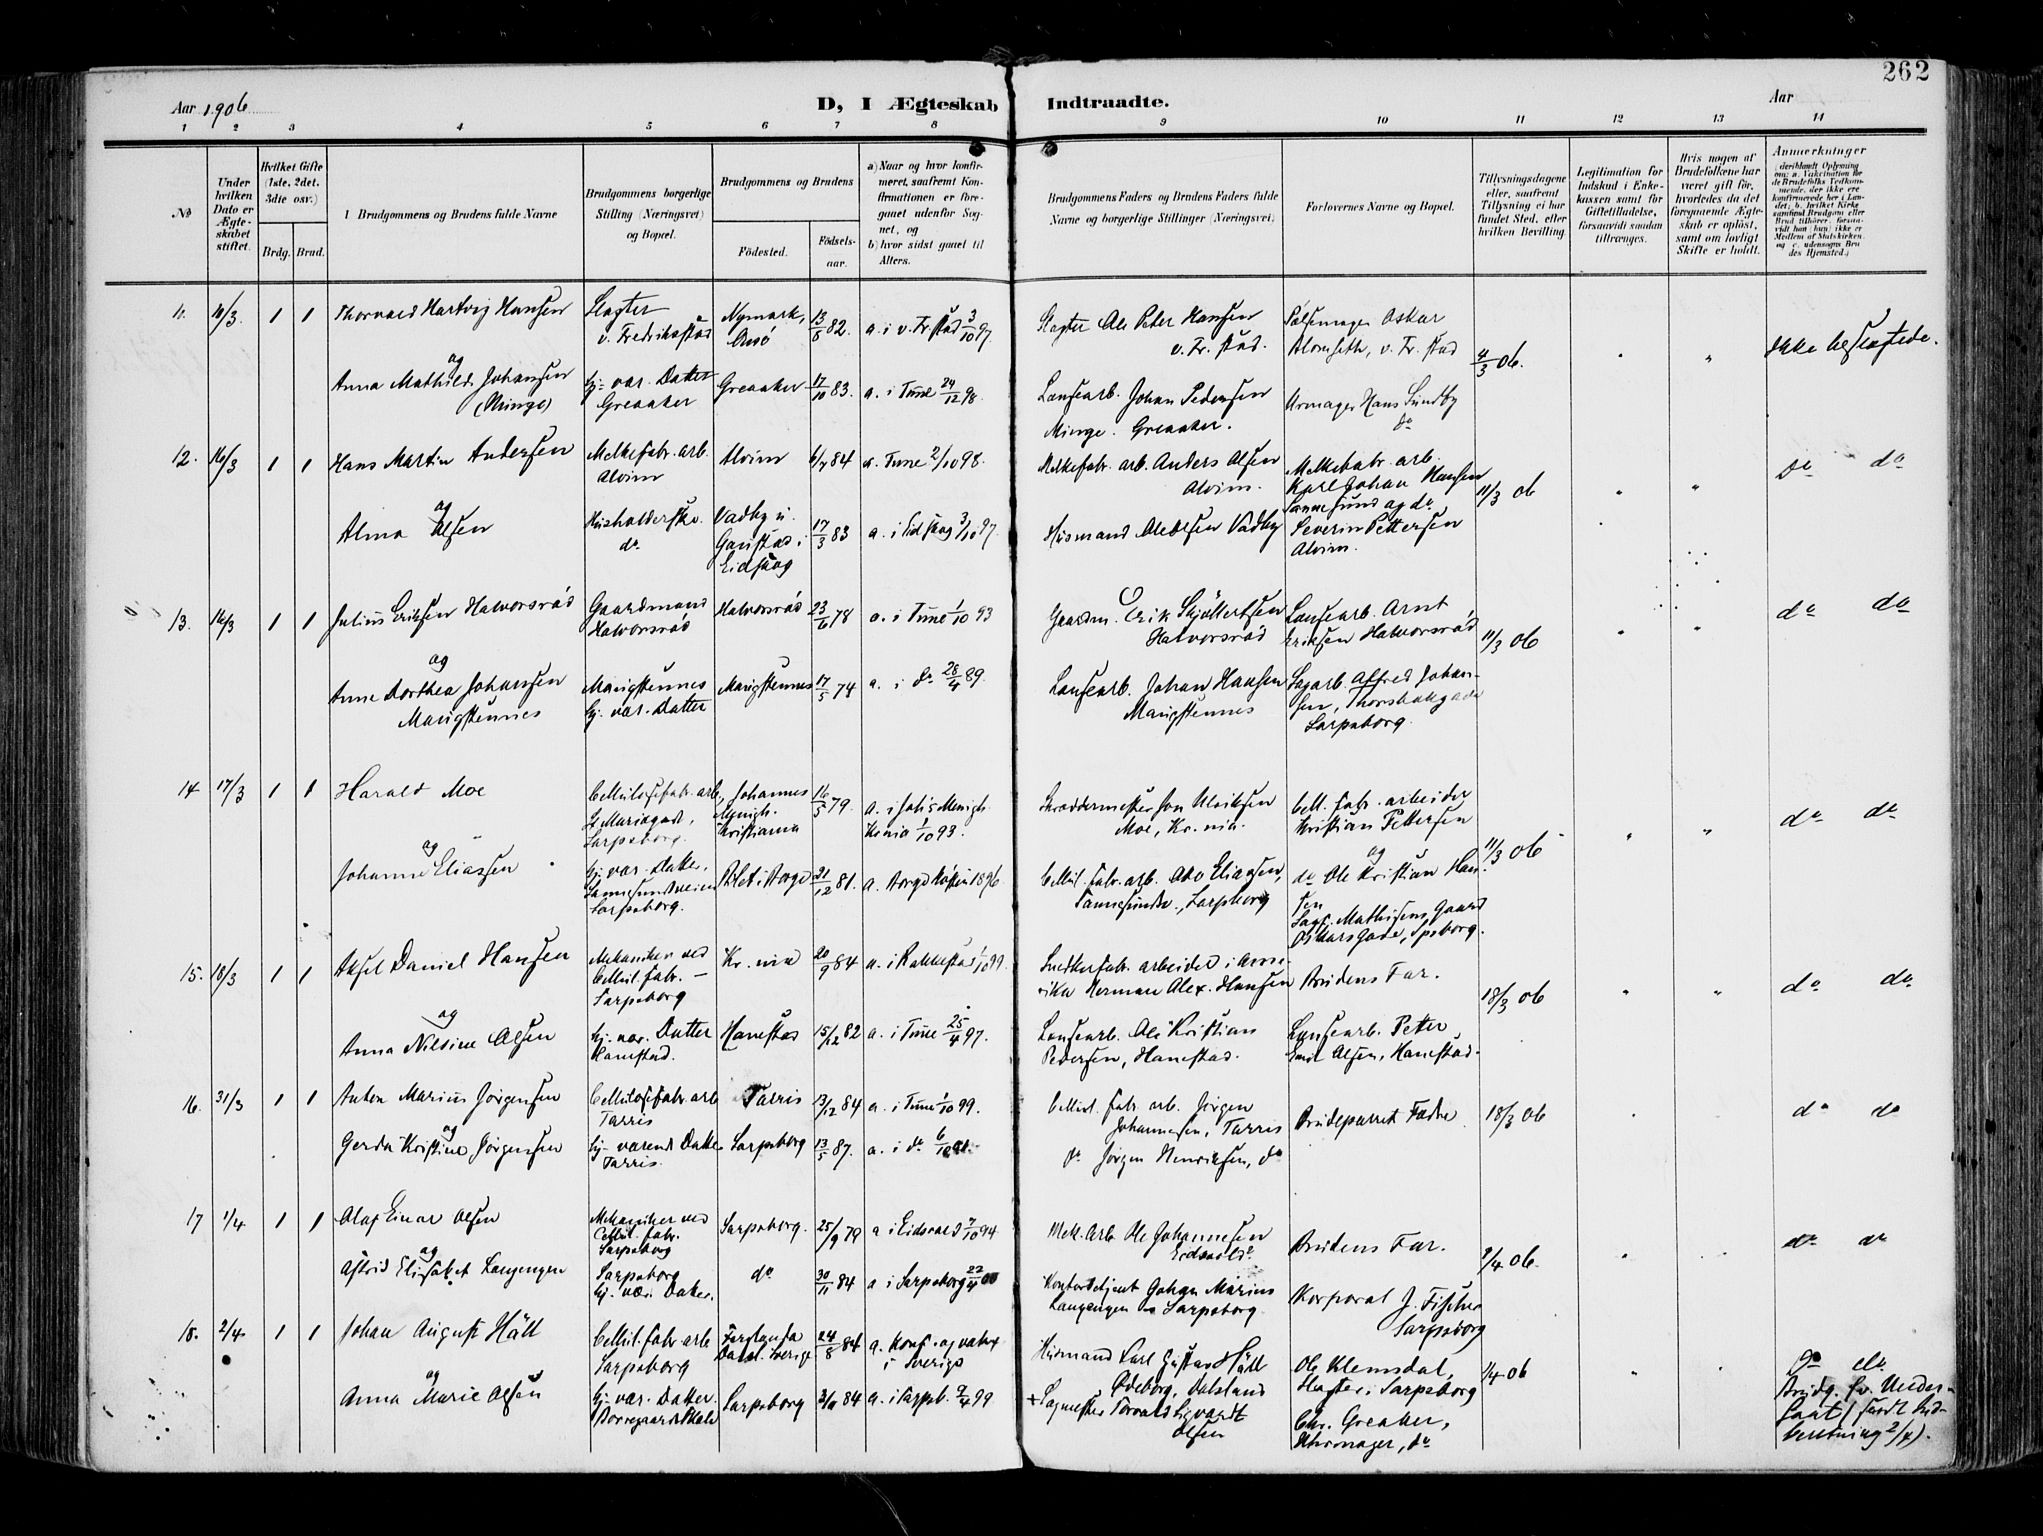 262
Aar 1906
D, I Ægteskab Indtraadte.
Aar
1 2 3 4 5 6 7 8 9 10 11 12 13 14
No
Under hvilken Dato er Ægteskabet stiftet.
Hvilket Gifte (1ste, 2det, 3dte osv.)
Brdg. Brud.
1 Brudgommens og Brudens fulde Navne
Brudgommens borgerlige Stilling (Næringsvei) og Bopæl.
Brudgommens og Brudens
Fødested.
Fødselsaar.
a) Naar og hvor konfirmeret, saafremt Konfirmationen er foregaaet udenfor Sognet, og
b) hvor sidst gaaet til Alters.
Brudgommens Faders og Brudens Faders fulde Navne og borgerlige Stillinger (Næringsvei)
Forlovernes Navne og Bopæl.
Tillysningsdagene eller, saafremt Tillysning ei har fundet Sted, efter hvilken Bevilling.
Legitimation for Indskud i Enkekassen samt for Giftetilladelse, forsaavidt saadan tiltrænges.
Hvis nogen af Brudefolkene har været gift før, hvorledes da det foregaaende Ægteskab er opløst, samt om lovligt Skifte er holdt.
Anmærkninger
11. 16/3 1 1 Thorvald Hartvig Hansen
Slagter v. Fredriksstad
Nymark, Onsö
13/5 82.
a. i v. Fr.stad 3/10 97.
Slagter Ole Peter Hansen v. Fr.stad.
Pölsemager Oskar
v. Fr.stad
4/3 06.
Ikke beslægtede.
og
Anna Mathilde Johansen (Minge)
Hj. vær. Datter Greaaker
Greaaker
17/10 83.
a. i Tune 24/12 98.
Løsearb. Johan Pedersen Minge. Greaaker.
Urmager Hans Sundby do
12. 16/3 1 1 Hans Martin Andersen
Melkefabr. arb. Alvim
Alvim
6/7 84
a. Tune 2/10 98.
Melkefabr. arb. Anders Olsen Alvim.
Melkefabr. arb. Karl Johan Hansen Sannesund og do
11/3 06
do do
og
Alma Olsen
do.
Vadby u. Gaustad i Eidskog
17/3 83
a. i Eidskog 3/10 97.
Husmand Ole Olsen Vadby
Severin Pettersen Alvim.
13. 16/3 1 1 Julius Eriksen Halvorsrød
Gaardmand Halvorsrød
Halvorsrød
23/6 78
a. i Tune 1/10 93
Gaardm. Erik Skjöllertsen Halvorsrød
Løsearb. Arnt Eriksen Halvorsrød
11/3 06
do do
og
Anne Dorthea Johansen Maugstennes
Maugstennes Hj. vær. Datter
Maugstennes
17/5 74
a. i do 28/4 89.
Løsearb. Johan Hansen Maugstennes
Sagarb. Alfred Johansen, Thorsbakgade Sarpsborg.
14 17/3 1 1 Harald Moe
Cellulosefabr. arb. St. Mariegade, Sarpsborg.
Johannes Menigh. Kristiania
16/5 79.
a. i Joh's Menigh. Kr.nia 1/10 93.
Skræddermester Jon Ulriksen Moe, Kr.nia.
Cell. fabr. arbeider Kristian Pettersen
11/3 06
do do
og
Johanne Eliassen
Hj. vær. Datter, Sannesundsveien Sarpsborg.
i Borge
21/12 81.
a. Borge Høsten 1896.
Cellul. fabr. arb. Eliassen, Sannesundsv., Sarpsborg
og
do Ole Kristian Hansen
Mathisens Gaard Oskarsgade, Spsborg.
15. 18/3 1 1 Aksel Daniel Hansen
Mekaniker ved Cellul. fabr. - Sarpsborg
Kr.nia
20/9 84
a. i Rakkestad 1/10 99.
Snedkerfabr. arbeider i Amerika Herman Alex. Hansen
Brudens Far.
18/3 06
do do
og
Anna Nilsine Olsen
Hj. vær. Datter Hanestad.
Hanestad
15/12 82
a. i Tune 25/4 97.
Løsearb. Ole Kristian Pedersen, Hanestad.
Løsearb. Petter Emil Olsen, Hanestad.
16. 31/3 1 1 Anton Marius Jørgensen
Cellulosefabr. arb Tarris
Tarris
13/12 84
a. i Tune 1/10 99.
Cellul. fabr. arb. Jørgen Johannesen, Tarris
Brudeparret Fædre
18/3 06
do do
og
Gerda Kristine Jørgensen
Hj. værend Datter Tarris.
Sarpsborg
13/5 87.
a. i do 6/10
do Jørgen Henriksen, do
17 1/4 1 1 Olaf Einar Olsen
Mekaniker ved Cellul. fabr. Sarpsborg
Sarpsborg.
25/9 79
a i Eidsvold 7/10 94
Mek. Arb. Ole Johannesen Eidsvold
Brudens Far.
1/4 06.
do do
og
Astrid Elisabet Langengen
Sarpsborg Hj. vær. Datter.
do
30/11 84
a i Sarpsborg 22/4 00
Kontorbetjent Johan Marius Langengen Sarpsborg.
Korporal J. Fischer Sarpsborg
18. 2/4 1 1 Johan August Häll
Cellul. fabr. arb Sarpsborg
Dalsl. Sverige
24/8 84
a. Konf. og vakc. i Sverige
Husmand Karl Gustav Häll Ødeborg, Dalsland
Ole Klemsdal, Slagter i Sarpsborg
1/4 06
do do
og
Anna Marie Olsen
Hj. vær. Datter.
Sarpsborg
84
a. i Sarpsb. 9/4 99
+ Sagmester Torvald Sigvardt Olsen
Chr. Greaker, Uhrmager, do
Brudg. sv. Undersaat